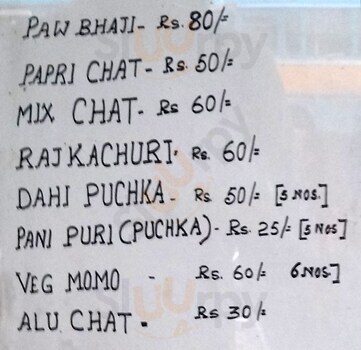 PAW BHAJI- Rs. 80/=
PAPRI CHAT- Rs. 50/=
MIX CHAT- Rs 60/=
RAJ KACHURI- Rs. 60/=
DAHI PUCHKA- Rs 50/= [5 NOS.]
PANI PURI (PUCHKA)- Rs. 25/= [5 NOS]
VEG MOMO - Rs. 60/= 6 NOS.]
ALU CHAT - Rs 30/=